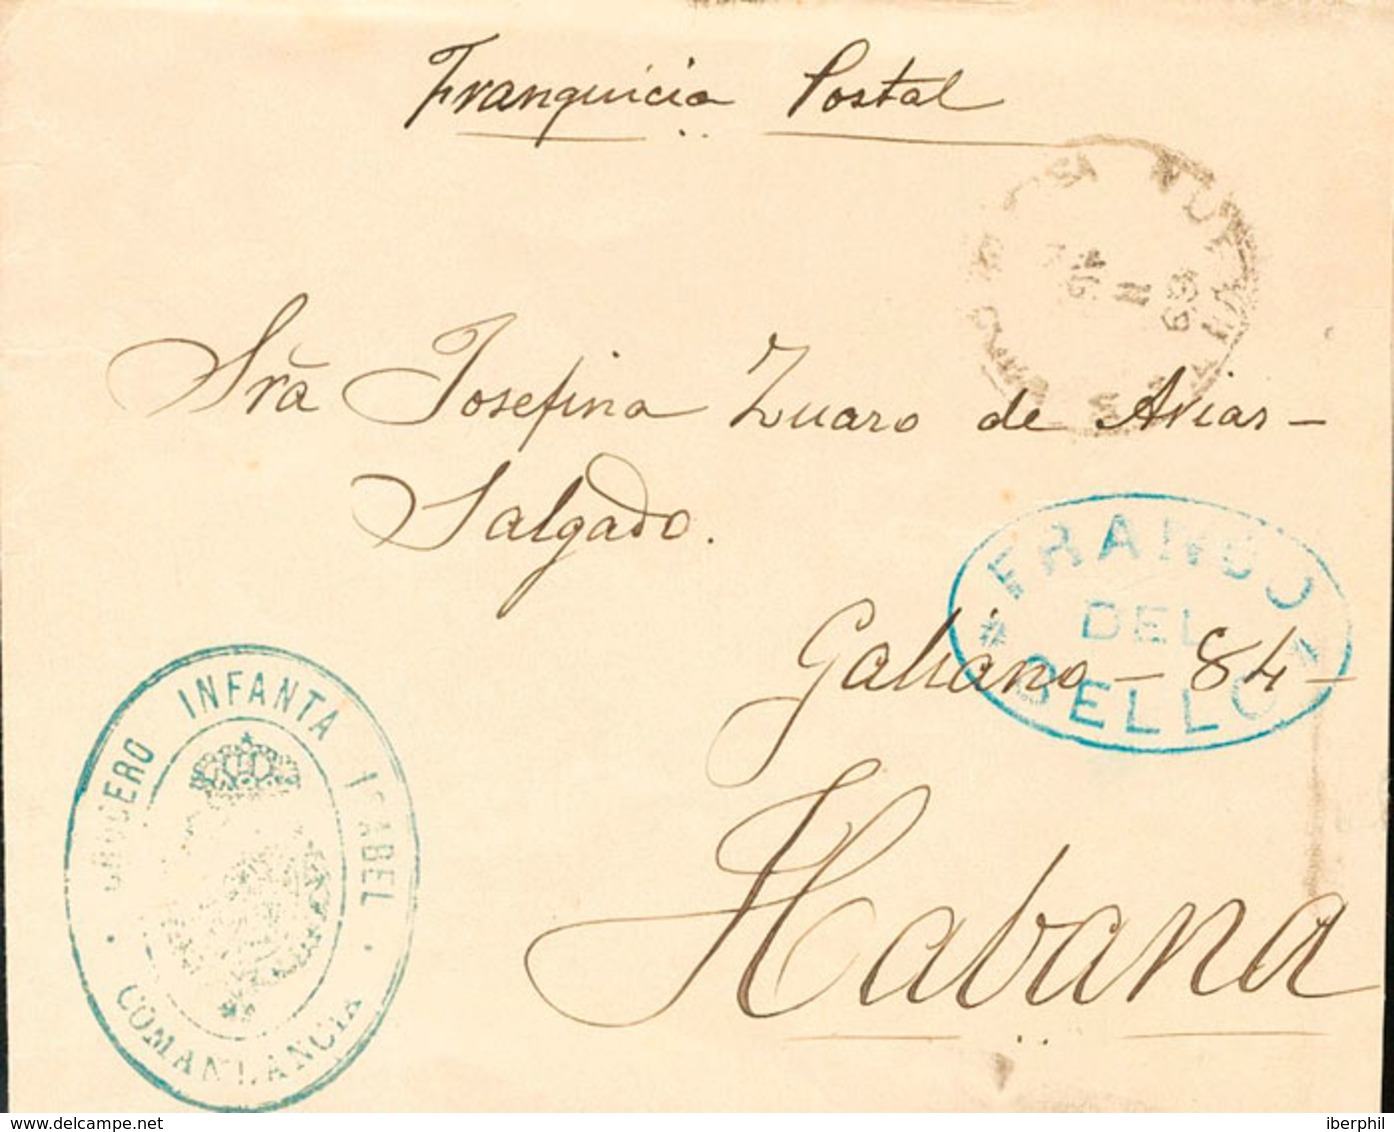 Franquicia Postal
Sra Josefina Zuaro de Arias-
Salgado.
FRANCO
DEL
SELLO
Galiano - 84 -
Habana
CRUCERO INFANTA ISABEL
COMANDANCIA
www.delcampe.net
iberphil